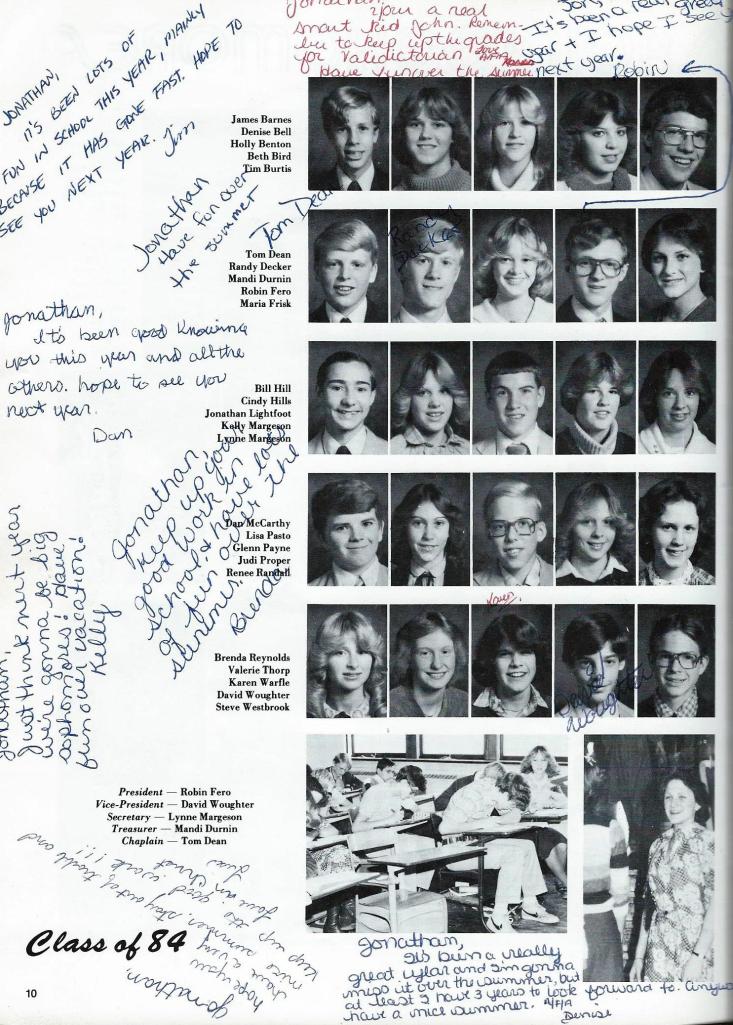 Jonathan,
Your a real
smart kid John. Remem-
ber to keep up the grades
for Validictorian
Have fun over the summer
It's been a real great
year + I hope I see y
next year.
Robin
JONATHAN,
IT'S BEEN LOTS OF
FUN IN SCHOOL THIS YEAR, MAINLY
BECAUSE IT HAS GONE FAST. HOPE TO
SEE YOU NEXT YEAR. Jim
James Barnes
Denise Bell
Holly Benton
Beth Bird
Tim Burtis
Jonathan
Have fun over
the summer
Tom Dean
Tom Dean
Randy Decker
Mandi Durnin
Robin Fero
Maria Frisk
Randy
Decker
Jonathan,
It's been good knowing
you this year and all the
others. hope to see you
next year.
Dan
Bill Hill
Cindy Hills
Jonathan Lightfoot
Kelly Margeson
Lynne Margeson
Jonathan,
Keep up your
good work in
school & have lots
of fun over the
summer.
Brenda
Dan McCarthy
Lisa Pasto
Glenn Payne
Judi Proper
Renee Randall
Jonathan,
Just think next year
we're gonna be big
sophomores! Have
fun over vacation!
Kelly
Karen
Brenda Reynolds
Valerie Thorp
Karen Warfle
David Woughter
Steve Westbrook
Woughter
President — Robin Fero
Vice-President — David Woughter
Secretary — Lynne Margeson
Treasurer — Mandi Durnin
Chaplain — Tom Dean
Jonathan,
hope you
have a very
nice summer, stay out of trouble and
keep up the good work!!!
Class of 84
Jonathan,
It's been a really
great year and I'm gonna
miss it over the summer, but
at least I have 3 years to look forward to.
have a nice summer. A/F/A
Denise
10